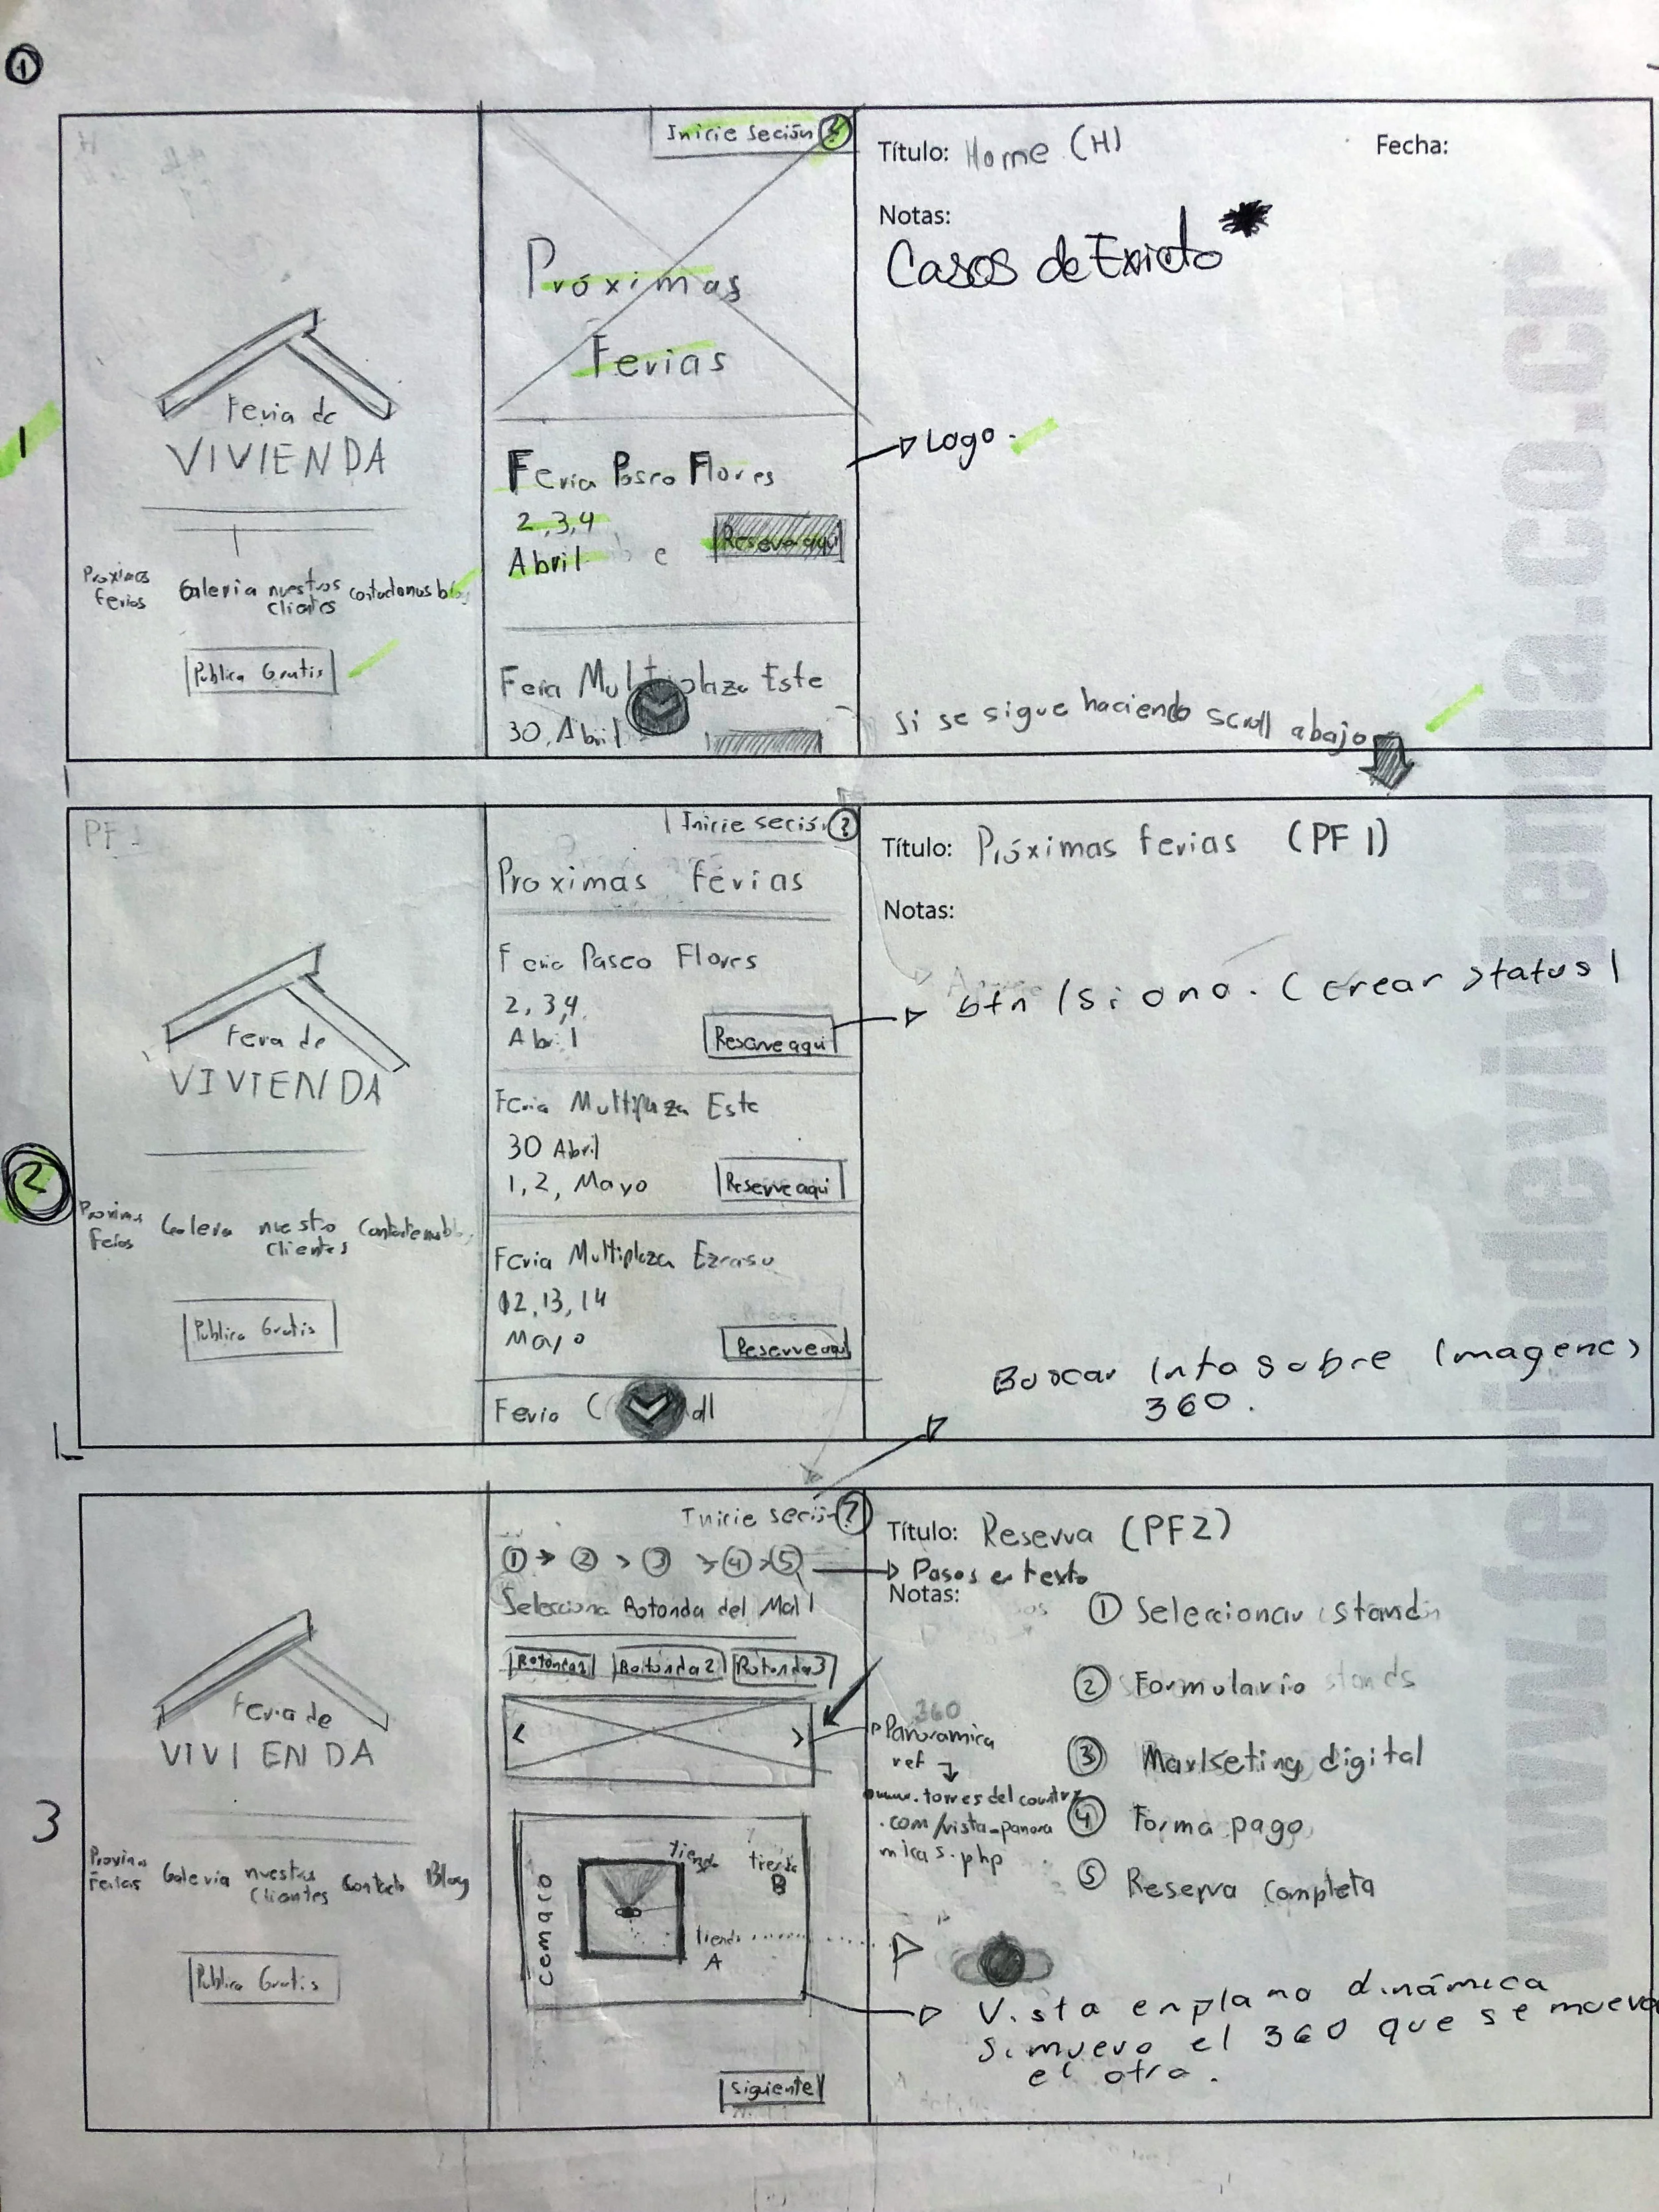 1
1
Inicie Seción ?
Título: Home (H)
Fecha:
Notas:
Casos de Exicto
Próximas
Ferias
Feria de
VIVIENDA
Feria Paseo Flores
Logo
2,3,4
Abril
Reserve aqui
Proximas
ferias
Galeria
nuestros
clientes
contactenos
blog
Publica Gratis
Feria Multiplaza Este
30, Abril
Si se sigue haciendo scroll abajo
2
PF 1
Inicie seción ?
Título: Próximas ferias (PF 1)
Proximas ferias
Notas:
Feria Paseo Flores
2, 3,4,
Abril
Reserve aqui
btn / si o no. (crear status)
Feria de
VIVIENDA
Feria Multiplaza Este
30 Abril
1, 2, Mayo
Reserve aqui
Proximas
ferias
Galeria
nuestro
clientes
Contactenos
blog
Feria Multiplaza Ezcasu
12, 13, 14
Mayo
Reserve aqui
Publica Gratis
Buscar info sobre Imagenes
360.
Feria C
dl
3
Inicie seción ?
Título: Reserva (PF2)
1 > 2 > 3 > 4 > 5
Pasos en texto
Notas:
Selecciona Rotonda del Mall
Rotonda1
Rotonda2
Rotonda3
1 Seleccionar stand
2 Formulario
3 Marketing digital
4 Forma pago
5 Reserva completa
< >
360
Panoramica
ref
www.torresdelcountry
.com/vista_panora
micas.php
Feria de
VIVIENDA
cemaco
tienda
tienda
B
tienda
A
Proximas
ferias
Galeria
nuestros
Clientes
Contacto
Blog
Publica Gratis
Vista en plano dinámica
si muevo el 360 que se mueva
el otro.
Siguiente
www.feriadevivienda.co.cr